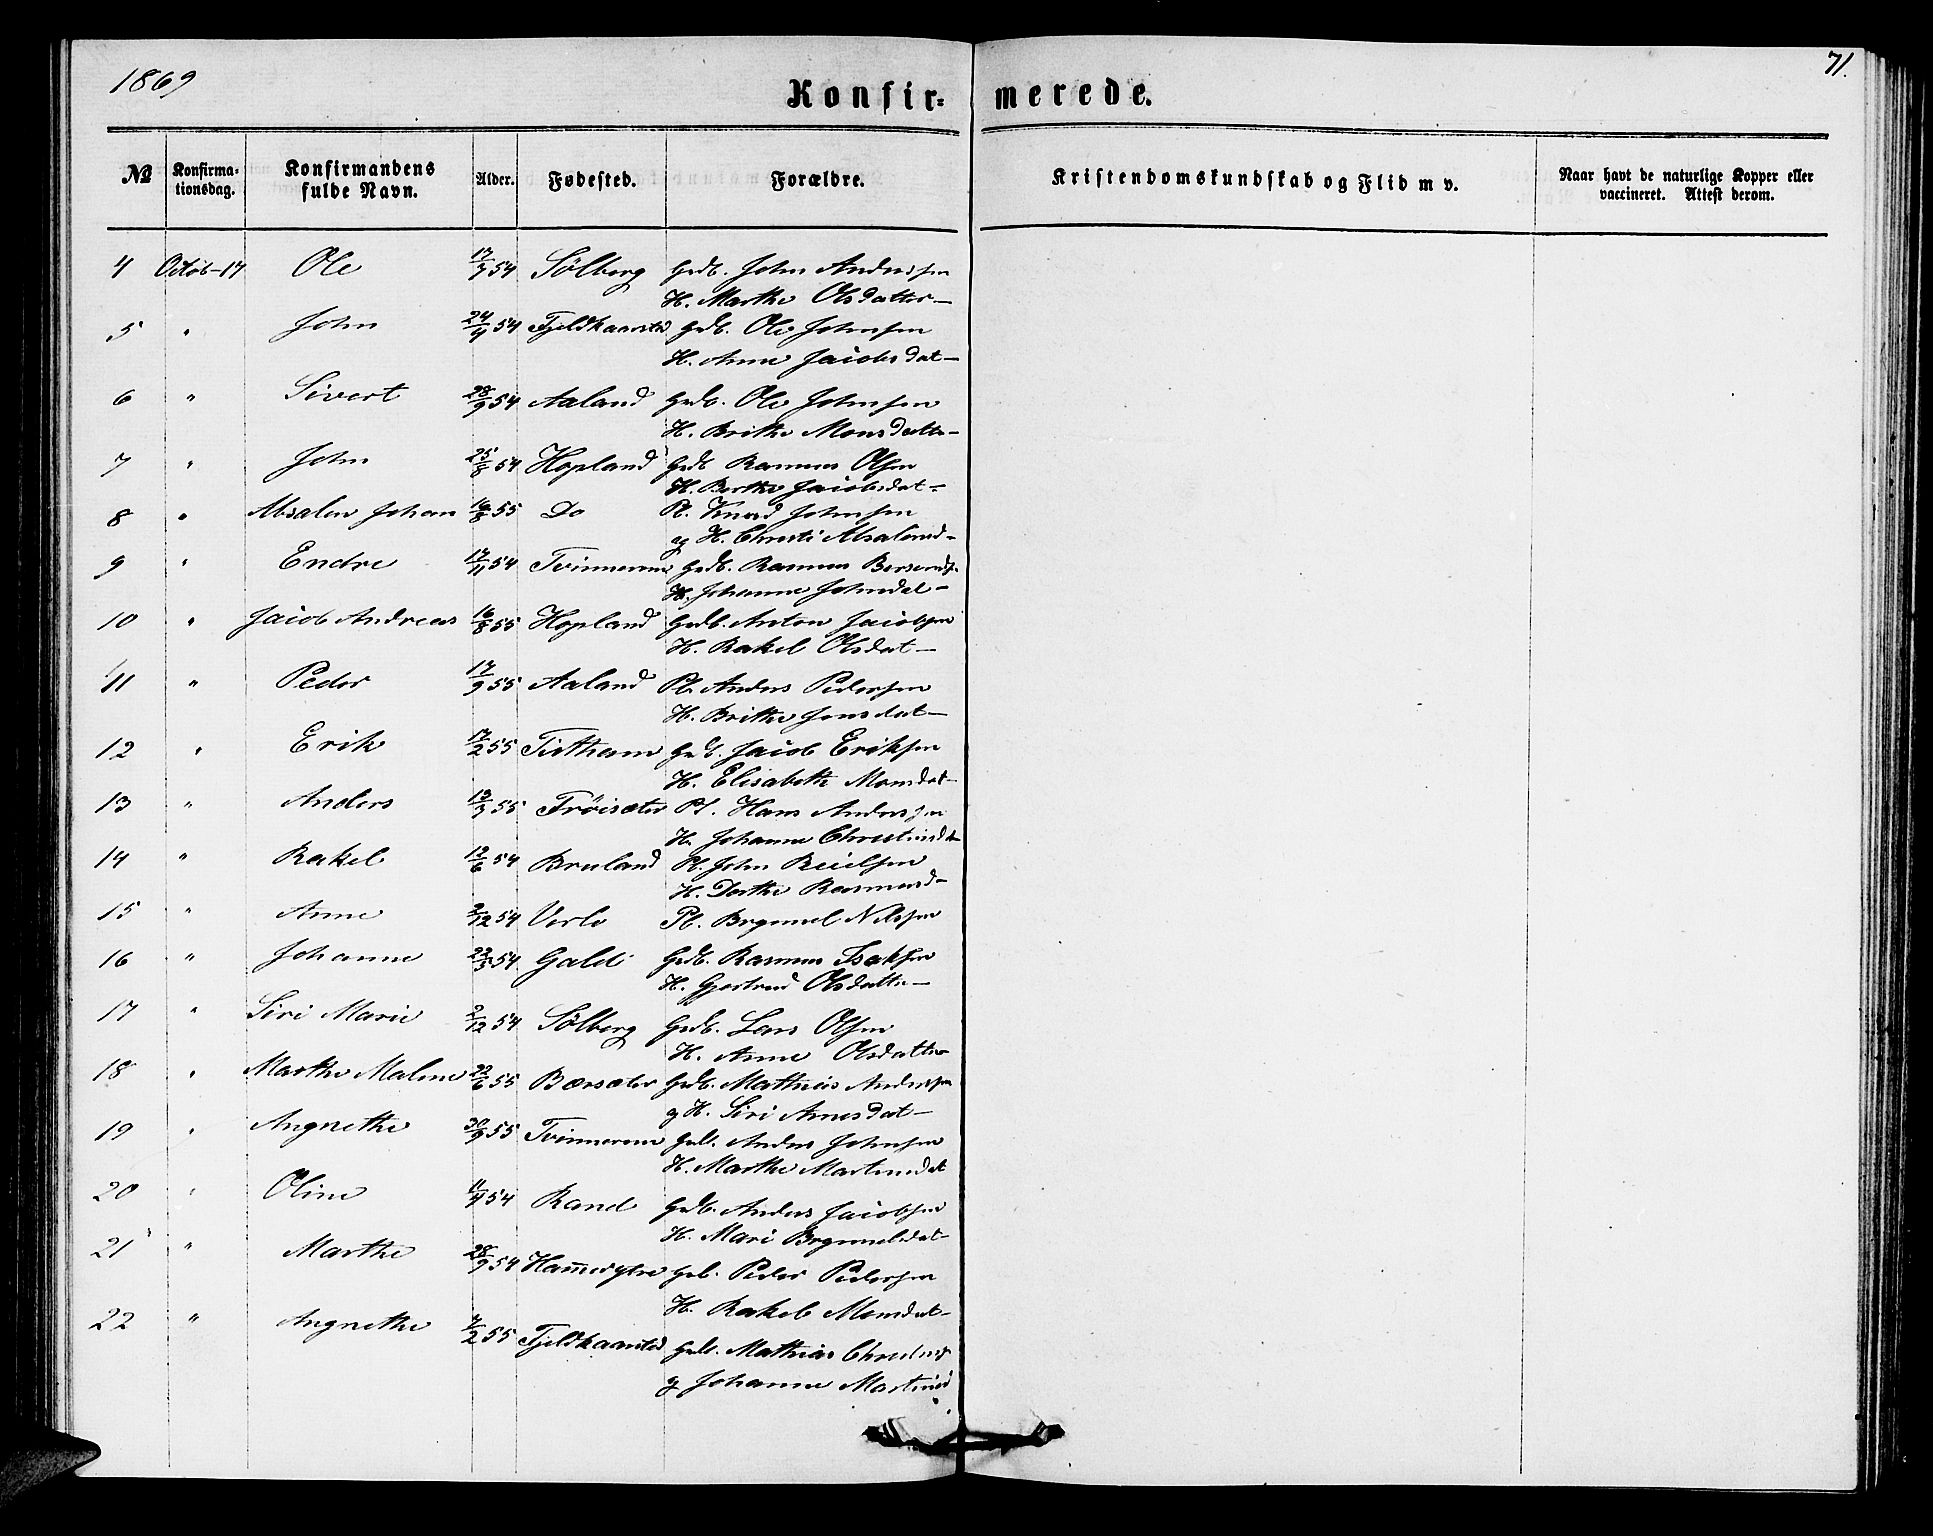 1869
71.
Konfir=merede.
№ Konfirma=tionsdag. Konfirmandens fulde Navn. Alder. Fødested. Forældre. Kristendomskundskab og Flid m v. Naar havt de naturlige Kopper eller vaccineret. Attest derom.
4 Octob-17 Ole 17/7 54 Sölberg Grdb. John Anderssen
H. Marthe Olsdatter-
5 " John 24/9 54 Fjeldkaarsta Grdb. Ole Johnsen
H. Anne Jacobsdat-
6 " Sivert 28/9 54 Aaland Grdb. Ole Johnsen
H. Brithe Monsdatte-
7 " John 25/8 54 Hopland Grdb Rasmus Olsen
H. Berthe Jacobsdat-
8 " Absalon Johan 16/8 55 Do Pl. Knud Johnsen
og H. Christi Absalonsd-
9 " Endre 17/11 54 Tvinnerem Grdb. Rasmus
H. Johanne Johnsdat-
10 " Jacob Andreas 16/8 55 Hopland Grdb. Anton Jacobsen
H. Rakel Olsdat-
11 " Peder 17/9 55 Aaland Pl. Anders Pedersen
H. Brithe Jonsdat-
12 " Erik 17/2 55 Grdb. Jacob Eriksen
H. Elisabeth Monsdat-
13 " Anders 13/3 55 Tröisæter Pl. Hans Anderssen
H. Johanne
14 " Rakel 12/6 54 Bruland Pl. John
H. Dorthe Rasmusd-
15 " Anne 2/12 54 Verlo Pl. Brynnel Nilssen
16 " Johanne 23/3 54 Gald Grdb. Rasmus Isaksen
H. Gjertrud Olsdatte-
17 " Siri Marie 2/12 54 Sölberg Grdb. Lars Olsen
H. Anne Olsdatter
18 " Marthe Malene 22/6 55 Bærsæter Grdb. Mathias Anderssen
og H. Siri Arnesdat-
19 " Angnethe 30/9 55 Tvinnerem Grdb. Anders Johnsen
H. Marthe Martinsdat
20 " Oline 11/9 54 Rand Grdb. Anders Jacobsen
H. Mari Brynnelsdat-
21 " Marthe 28/9 54 Grb. Peder Pedersen
H. Rakel Monsdat-
22 " Angnethe 7/2 55 Fjeldkaarsta Grdb. Mathias
og Johanne Martinsd